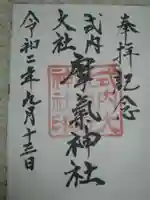 奉拝記念
式内
大社
摩氣神社
令和二年九月十三日